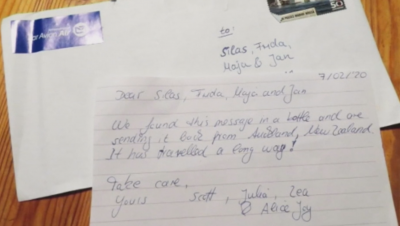 to:
Silas, Frida,
Maja & Jan
7/02/20
Dear Silas, Frida, Maja and Jan
We found this message in a bottle and are
sending it back from Auckland, New Zealand.
It has travelled a long way!
Take care,
Yours Scott, Julia, Lea
& Alice Joy